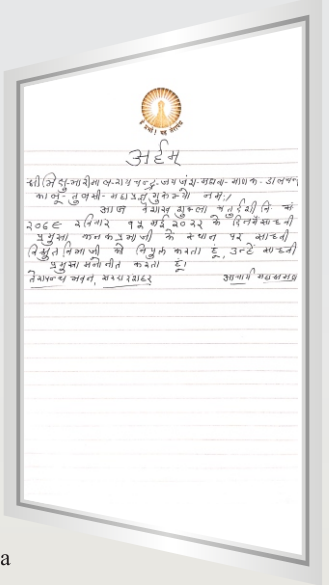 हे प्रभो ! यह तेरापंथ
अर्हम्
श्री भिक्षु-भारीमाल-राय चन्द-जय जश-मघवा-माणक-डालचन्द
कालू-तुलसी-महाप्रज्ञ गुरुभ्यो नमः।
आज वैशाख शुक्ला चतुर्दशी वि. सं.
२०७९ रविवार १५ मई २०२२ के दिन मैं साध्वी
प्रमुखा कनकप्रभाजी के स्थान पर साध्वी
विश्रुत विभा जी को नियुक्त करता हूं, उन्हें साध्वी
प्रमुखा मनोनीत करता हूं।
तेरापन्थ भवन, सरदारशहर आचार्य महाश्रमण
a